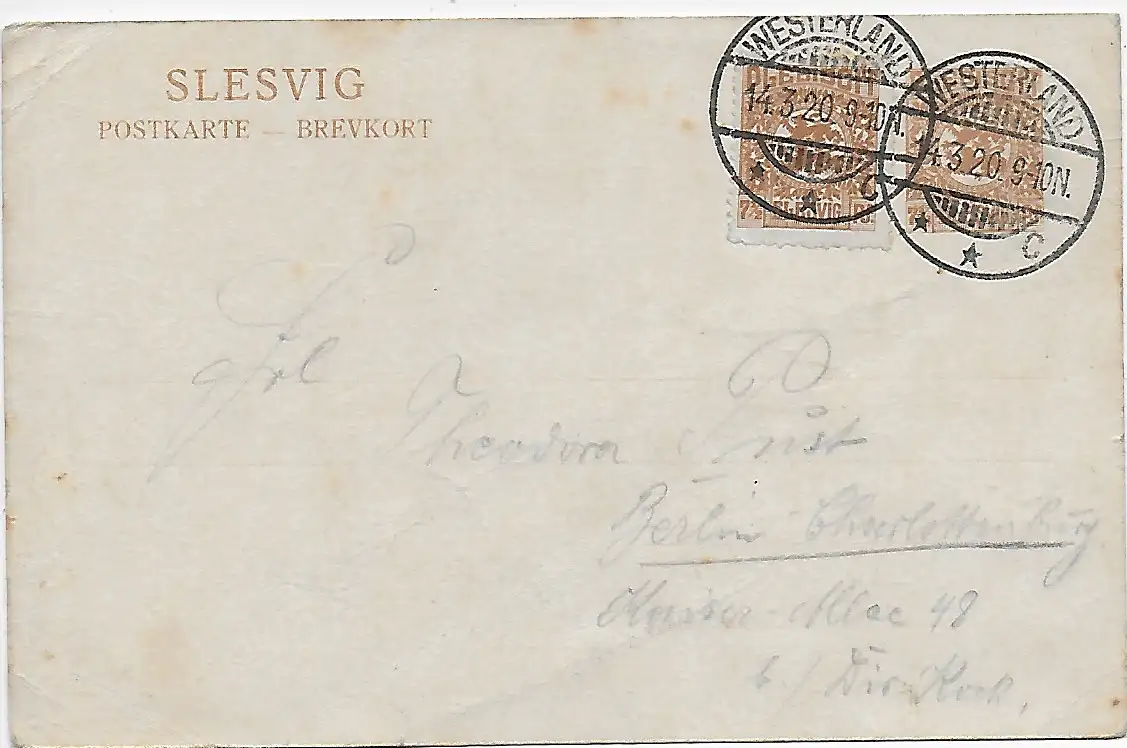 SLESVIG
POSTKARTE — BREVKORT
WESTERLAND
14.3.20.9-10N.
C
PLEBISCIT
7½ SLESVIG PF.
WESTERLAND
14.3.20.9-10N.
C
Frl
Theodora
Berlin Charlottenburg
Kaiser-Allee 48
b/ Dir. Kock.